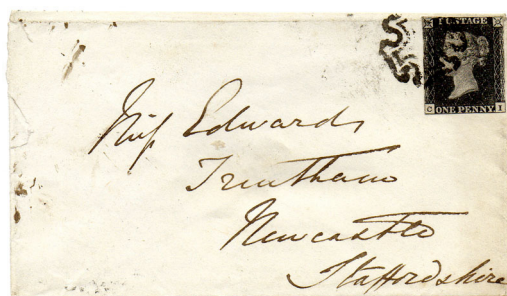 POSTAGE
C ONE PENNY I
Miſs Edwards
Trentham
Newcastle
Staffordshire